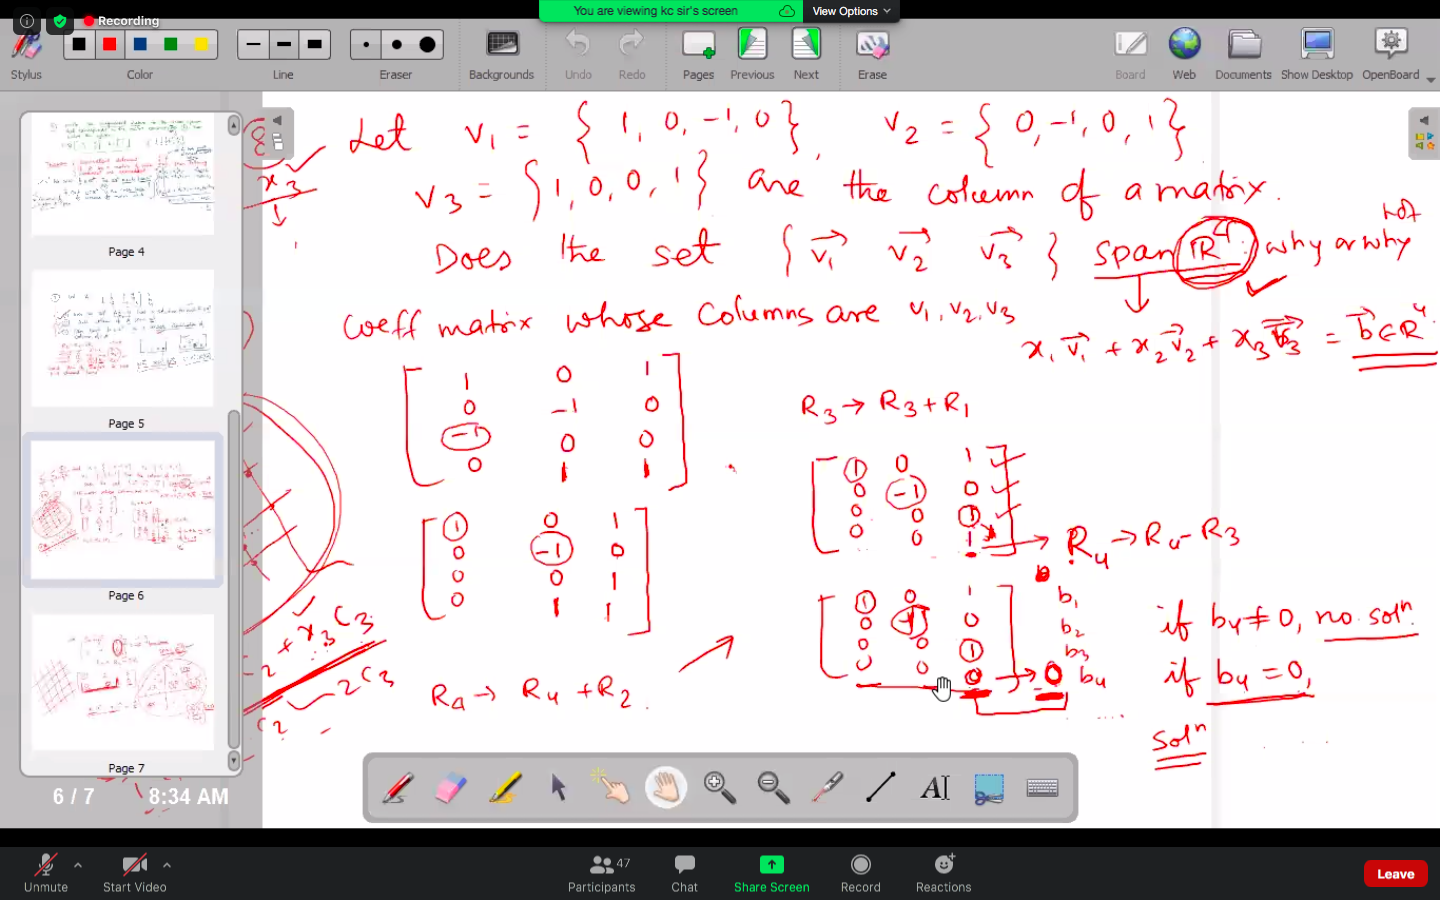 Recording
You are viewing kc sir's screen
View Options
Stylus
Color
Line
Eraser
Backgrounds
Undo
Redo
Pages
Previous
Next
Erase
Board
Web
Documents
Show Desktop
OpenBoard
Page 4
Page 5
Page 6
Page 7
6 / 7
8:34 AM
Let v1 = { 1, 0, -1, 0 }, v2 = { 0, -1, 0, 1 }
v3 = { 1, 0, 0, 1 } are the column of a matrix.
Does the set { v1 v2 v3 } span R^4 : why or why not
coeff matrix whose columns are v1, v2, v3
x1 v1 + x2 v2 + x3 v3 = b ∈ R^4
1 0 1
0 -1 0
-1 0 0
0 1 1
R3 → R3 + R1
1 0 1
0 -1 0
0 0 1
0 1 1
R4 → R4 + R2
1 0 1
0 -1 0
0 0 1
0 0 1
R4 → R4 - R3
1 0 1 b1
0 -1 0 b2
0 0 1 b3
0 0 0 → 0 b4
if b4 ≠ 0, no soln
if b4 = 0,
soln
x3
+ x3 C3
2C3
Unmute
Start Video
Participants
47
Chat
Share Screen
Record
Reactions
Leave